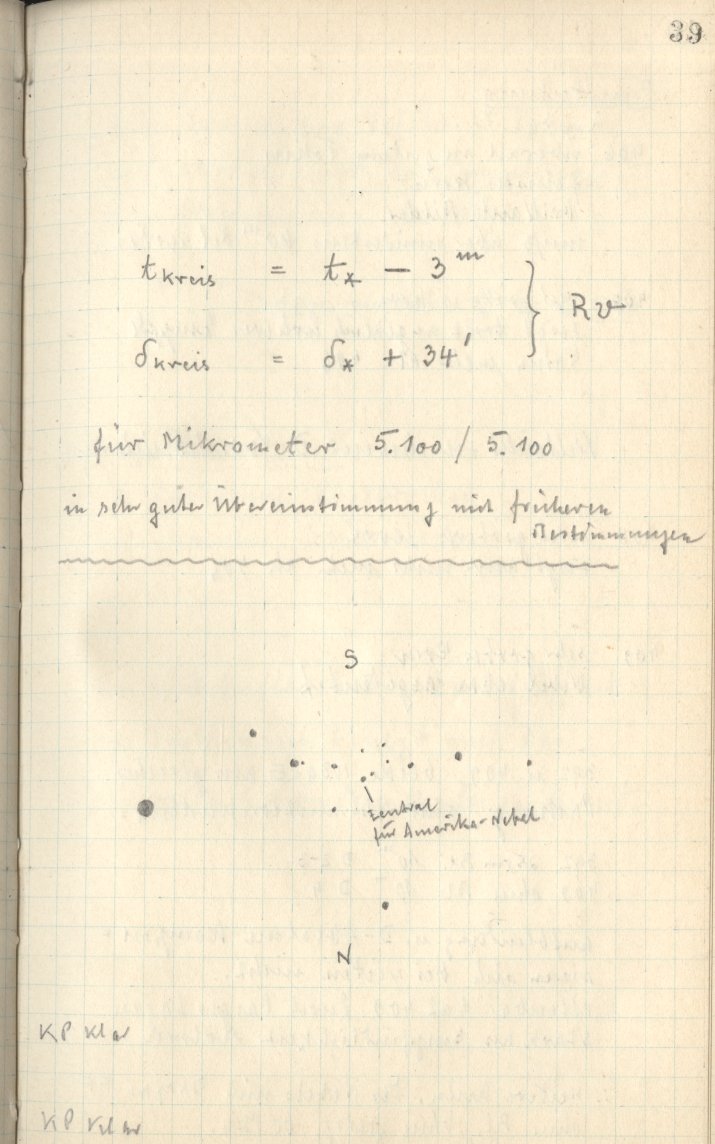 39
t kreis = t* − 3ᵐ } R v
δ kreis = δ* + 34′
für Mikrometer 5.100 / 5.100
in sehr guter Übereinstimmung mit früheren
Bestimmungen
S
Zentral
für Amerika-Nebel
N
KP klar
KP klar